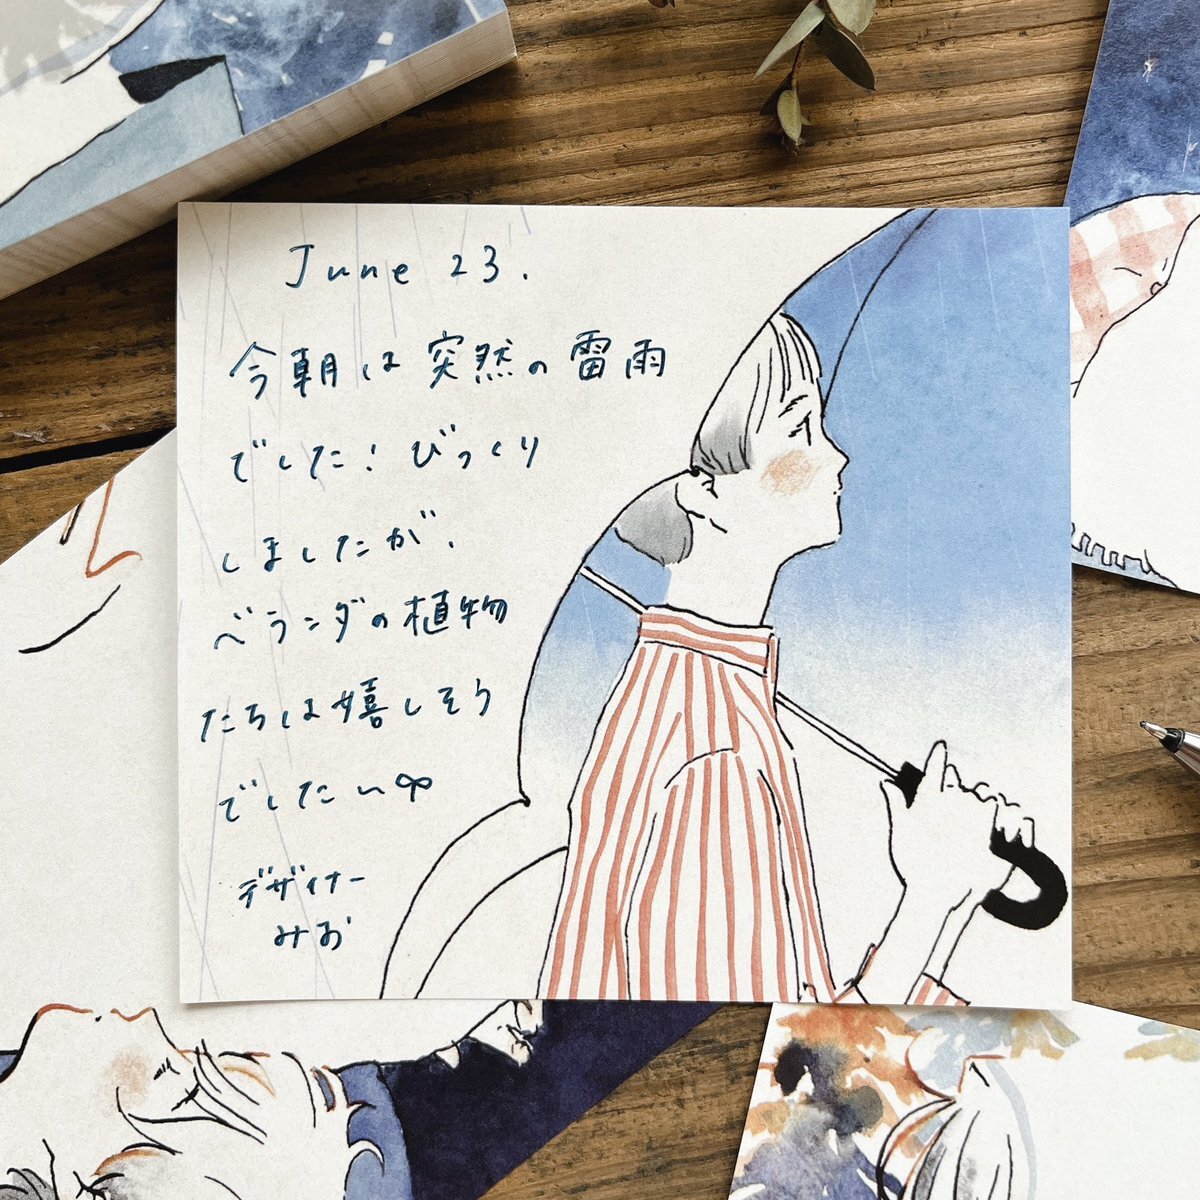 June 23.
今朝は突然の雷雨
でした!びっくり
しましたが、
ベランダの植物
たちは嬉しそう
でした〜
デザイナー
みお